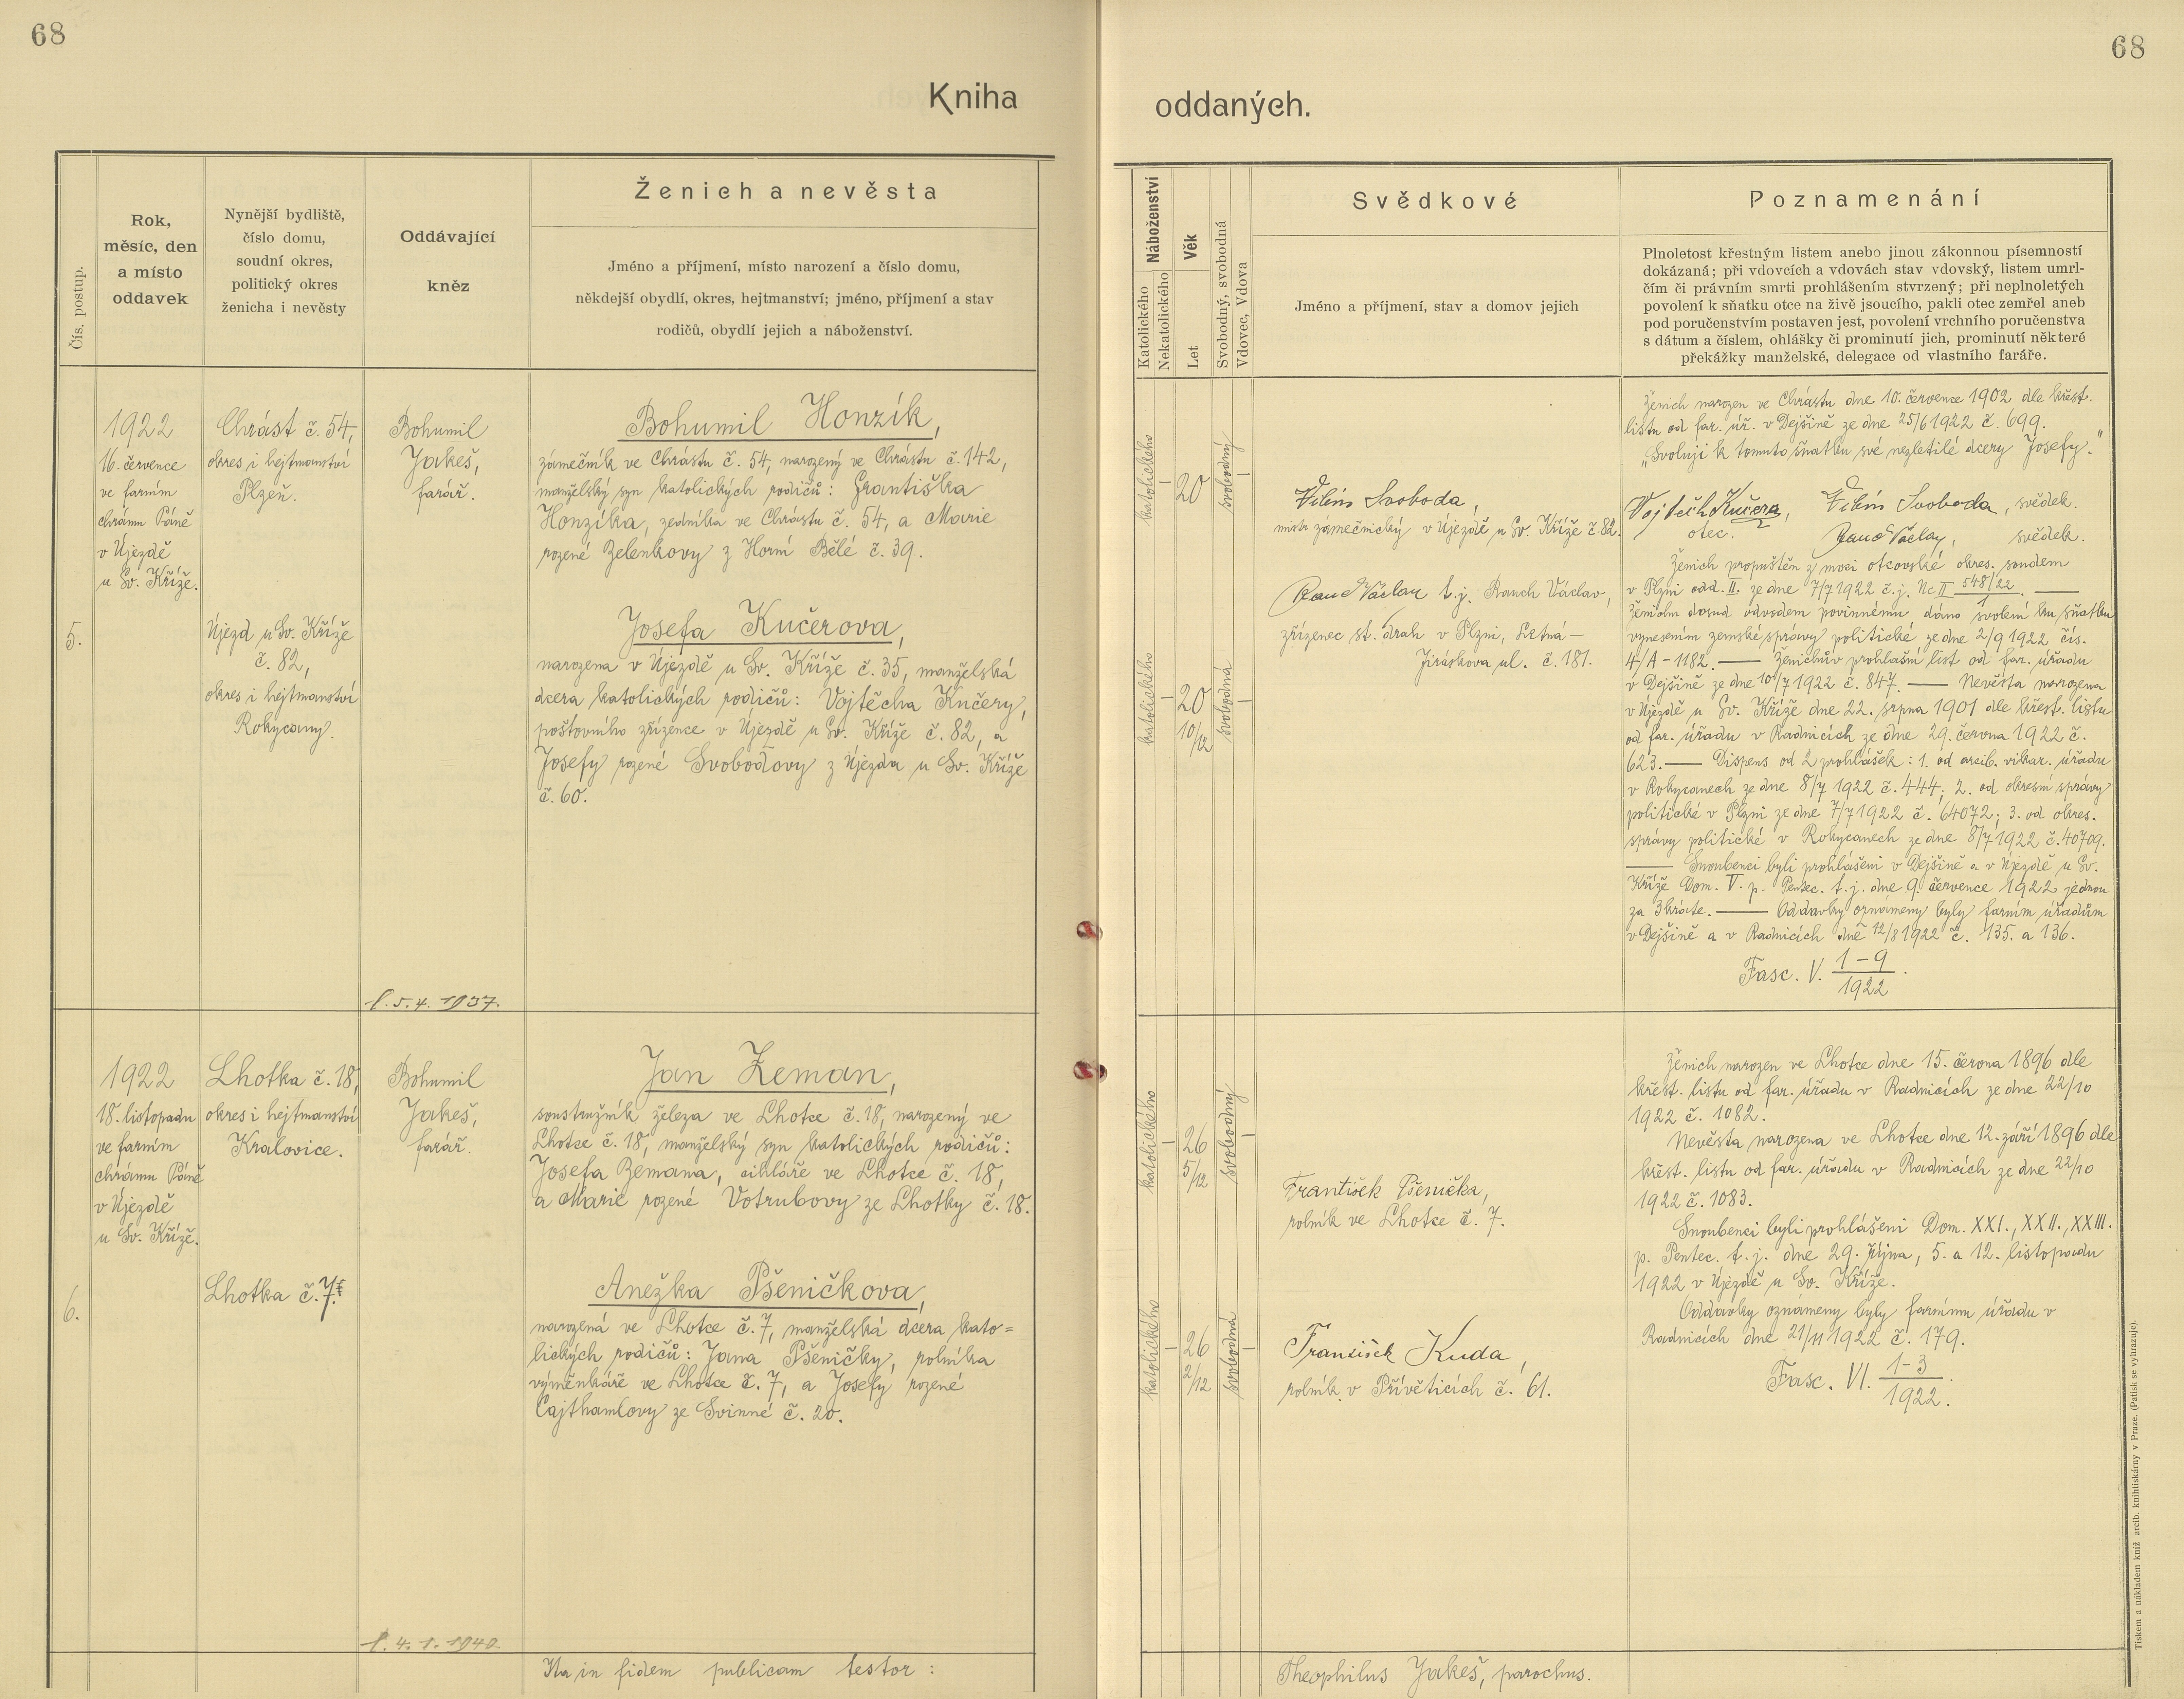 68
68
Kniha
oddaných.
Čís. postup.
Rok,
měsíc, den
a místo
oddavek
Nynější bydliště,
číslo domu,
soudní okres,
politický okres
ženicha i nevěsty
Oddávající
kněz
Ženich a nevěsta
Jméno a příjmení, místo narození a číslo domu,
někdejší obydlí, okres, hejtmanství; jméno, příjmení a stav
rodičů, obydlí jejich a náboženství.
Náboženství
Katolického
Nekatolického
Věk
Let
Svobodný, svobodná
Vdovec, Vdova
Svědkové
Jméno a příjmení, stav a domov jejich
Poznamenání
Plnoletost křestným listem anebo jinou zákonnou písemností
dokázaná; při vdovcích a vdovách stav vdovský, listem umrl-
čím či právním smrti prohlášením stvrzený; při neplnoletých
povolení k sňatku otce na živě jsoucího, pakli otec zemřel aneb
pod poručenstvím postaven jest, povolení vrchního poručenstva
s dátum a číslem, ohlášky či prominutí jich, prominutí některé
překážky manželské, delegace od vlastního faráře.
5.
1922
16. července
ve farním
chrámu Páně
v Újezdě
u Sv. Kříže.
Chrást č. 54,
okres i hejtmanství
Plzeň.
Újezd u Sv. Kříže
č. 82,
okres i hejtmanství
Rokycany.
Bohumil
Jakeš,
farář.
l. 5. 4. 1937.
Bohumil Honzík,
zámečník ve Chrástu č. 54, narozený ve Chrástu č. 142,
manželský syn katolických rodičů: Františka
Honzíka, zedníka ve Chrástu č. 54, a Marie
rozené Zelenkovy z Horní Bělé č. 39.
Josefa Kučerova,
narozena v Újezdě u Sv. Kříže č. 35, manželská
dcera katolických rodičů: Vojtěcha Kučery,
poštovního zřízence v Újezdě u Sv. Kříže č. 82, a
Josefy rozené Svobodovy z Újezda u Sv. Kříže
č. 60.
katolického
–
20
svobodný
–
katolického
–
20
10/12
svobodná
–
Vilém Svoboda,
mistr zámečnický v Újezdě u Sv. Kříže č. 82.
Rauch Václav t. j. Rauch Václav,
zřízenec st. drah v Plzni, Letná –
Jiráskova ul. č. 181.
Ženich narozen ve Chrástu dne 10. července 1902 dle křest.
listu od far. úř. v Dejšině ze dne 25/6 1922 č. 699.
„Svoluji k tomuto sňatku své nezletilé dcery Josefy."
Vojtěch Kučera, Vilém Svoboda, svědek.
otec. Rauch Václav, svědek.
Ženich propuštěn z moci otcovské okres. soudem
v Plzni odd. II. ze dne 7/7 1922 č. j. Nc II 548/22 / 1. —
Ženichu dosud odvodem povinnému dáno svolení ku sňatku
vynesením zemské správy politické ze dne 2/9 1922 čís.
4/A – 1182. — Ženichův prohlašní list od far. úřadu
v Dejšině ze dne 10/7 1922 č. 847. — Nevěsta narozena
v Újezdě u Sv. Kříže dne 22. srpna 1901 dle křest. listu
od far. úřadu v Radnicích ze dne 29. června 1922 č.
623. — Dispens od 2 prohlášek: 1. od arcib. vikar. úřadu
v Rokycanech ze dne 8/7 1922 č. 444; 2. od okresní správy
politické v Plzni ze dne 7/7 1922 č. 64072; 3. od okres.
správy politické v Rokycanech ze dne 8/7 1922 č. 40709.
— Snoubenci byli prohlášeni v Dejšině a v Újezdě u Sv.
Kříže Dom. V. p. Pentec. t. j. dne 9. července 1922 jednou
za 3kráte. — Oddavky oznámeny byly farním úřadům
v Dejšině a v Radnicích dne 12/8 1922 č. 135. a 136.
Fasc. V. 1–9 / 1922.
6.
1922
18. listopadu
ve farním
chrámu Páně
v Újezdě
u Sv. Kříže.
Lhotka č. 18,
okres i hejtmanství
Kralovice.
Lhotka č. 7.
Bohumil
Jakeš,
farář.
l. 4. 1. 1940.
Jan Zeman,
soustružník železa ve Lhotce č. 18, narozený ve
Lhotce č. 18, manželský syn katolických rodičů:
Josefa Zemana, cihláře ve Lhotce č. 18,
a Marie rozené Votrubovy ze Lhotky č. 18.
Anežka Pšeničkova,
narozená ve Lhotce č. 7, manželská dcera kato=
lických rodičů: Jana Pšeničky, rolníka
výměnkáře ve Lhotce č. 7, a Josefy rozené
Cajthamlovy ze Svinné č. 20.
katolického
–
26
5/12
svobodný
–
katolického
–
26
2/12
svobodná
–
František Pšenička,
rolník ve Lhotce č. 7.
František Kuda,
rolník v Přívěticích č. 61.
Ženich narozen ve Lhotce dne 15. června 1896 dle
křest. listu od far. úřadu v Radnicích ze dne 22/10
1922 č. 1082.
Nevěsta narozena ve Lhotce dne 12. září 1896 dle
křest. listu od far. úřadu v Radnicích ze dne 22/10
1922 č. 1083.
Snoubenci byli prohlášeni Dom. XXI., XXII., XXIII.
p. Pentec. t. j. dne 29. října, 5. a 12. listopadu
1922 v Újezdě u Sv. Kříže.
Oddavky oznámeny byly farnímu úřadu v
Radnicích dne 21/11 1922 č. 179.
Fasc. VI. 1–3 / 1922.
Ita in fidem publicam testor:
Theophilus Jakeš, parochus.
Tiskem a nákladem kníž. arcib. knihtiskárny v Praze. (Patisk se vyhrazuje).